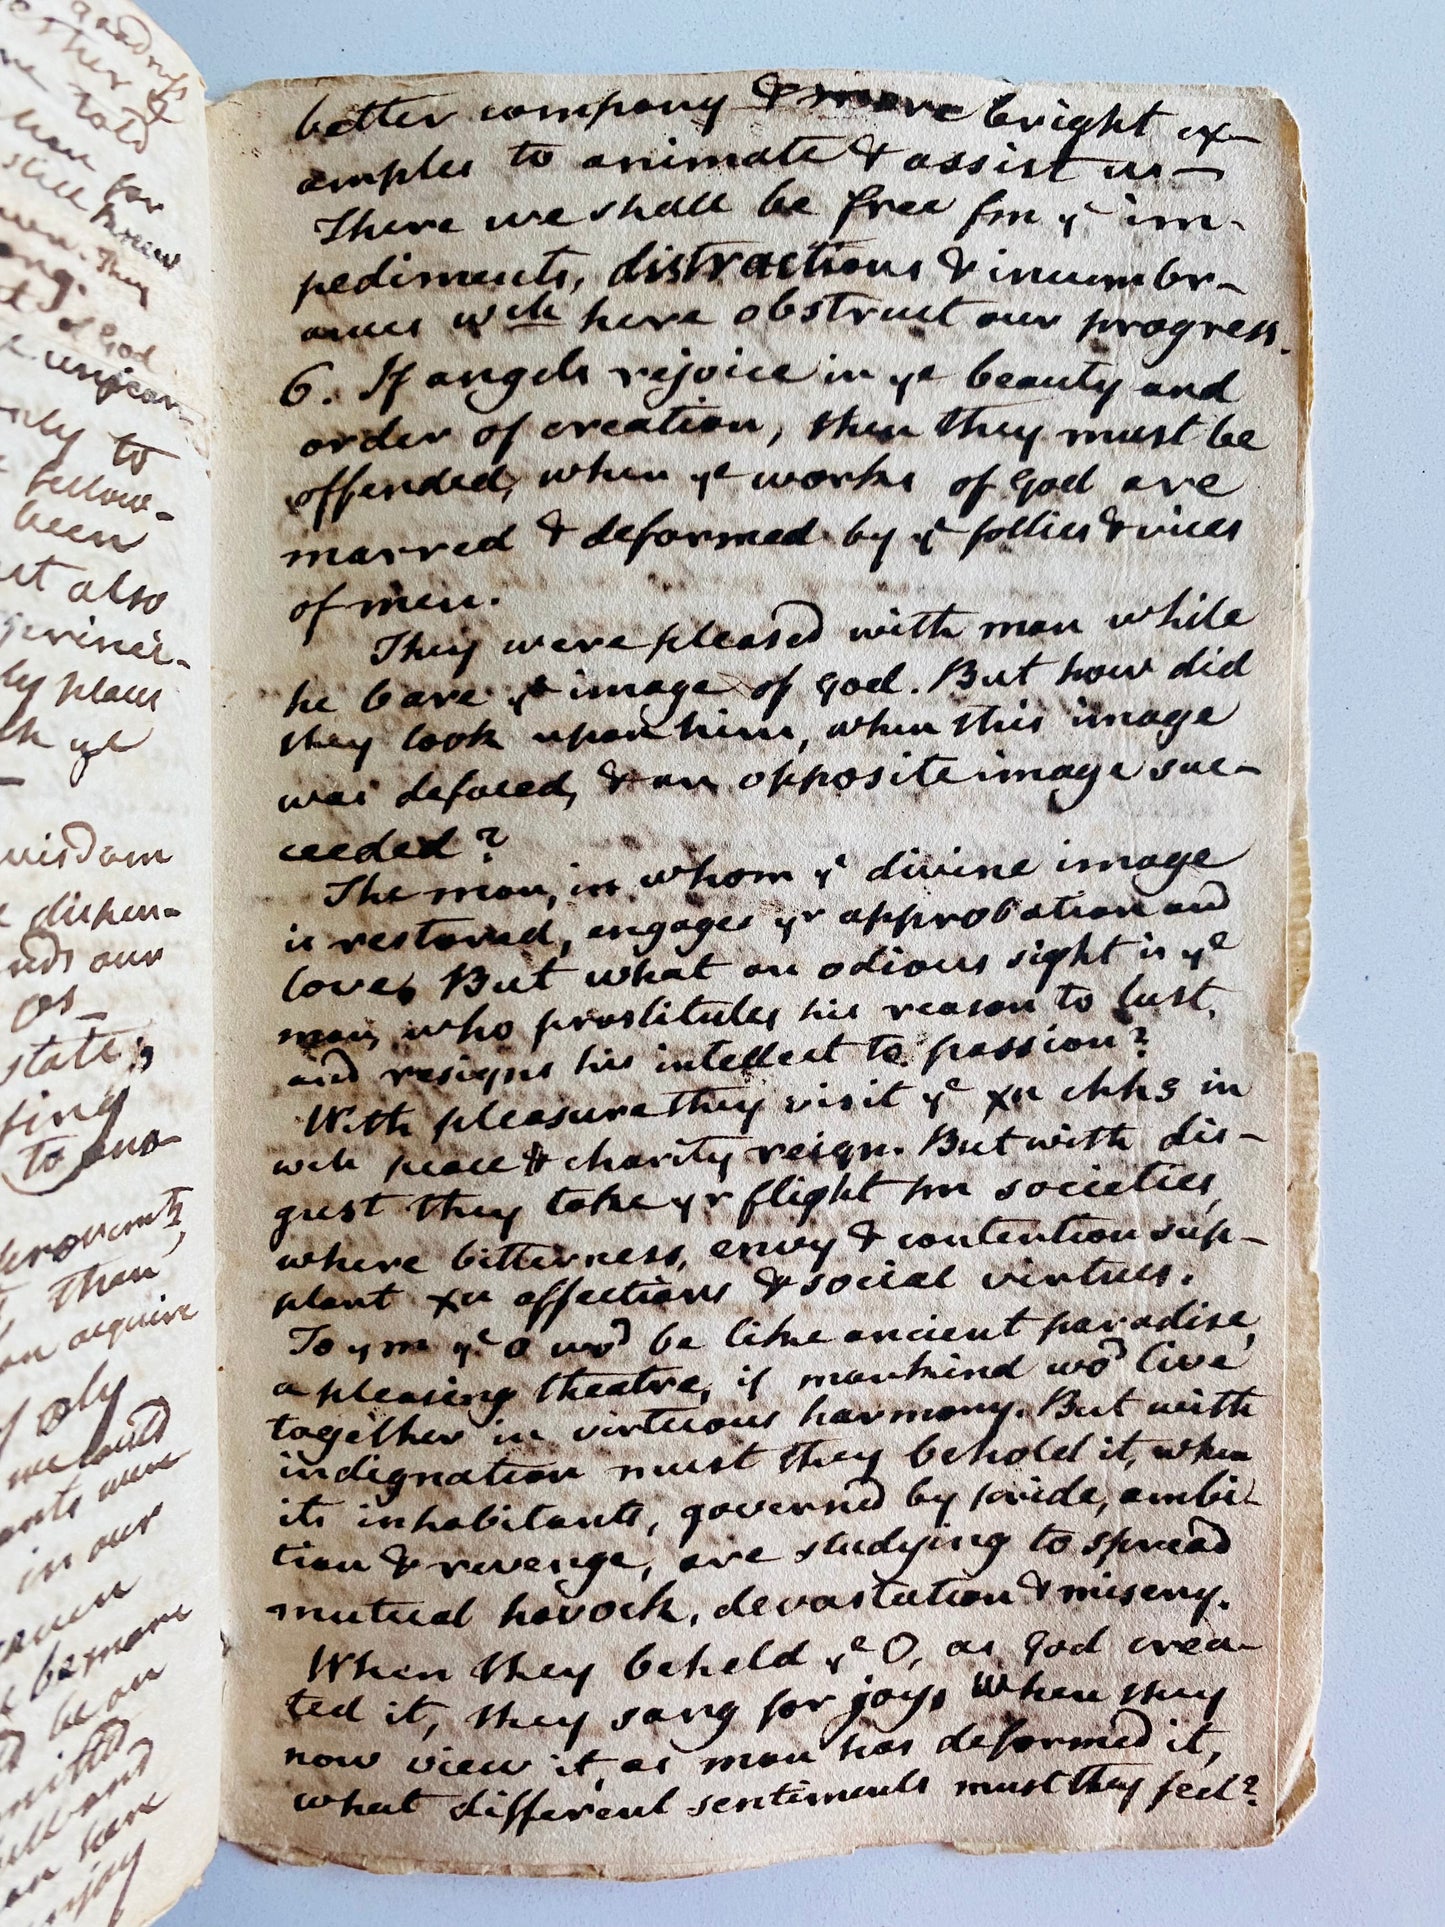 goodness
told
man for
still
own. They
ong.
d of God
only to
fellow-
been
ut also
princi-
ly place
ch ye
wisdom
e dispen-
nds our
as
state;
fing
to ano-
provements
than
an acquire
holy
we could
ants were
in our
be more
be an
mitted
en here
enjoy
better company & more bright ex-
amples to animate & assist us—
There we shall be free fm ye im-
pediments, distractions & incumbr-
ances wch here obstruct our progress.
6. If angels rejoice in ye beauty and
order of creation, then they must be
offended, when ye works of God are
marred & deformed by ye follies & vices
of men.
They were pleased with man while
he bare ye image of God. But how did
they look upon him, when this image
was defaced, & an opposite image suc-
ceeded?
The man, in whom ye divine image
is restored, engages yr approbation and
love. But what an odious sight is ye
man, who prostitutes his reason to lust,
and resigns his intellect to passion?
With pleasure they visit ye xn chhs in
wch peace & charity reign. But with dis-
gust they take yr flight fm societies,
where bitterness, envy & contention sup-
plant xn affections & social virtues.
To ym ye O wod be like ancient paradise,
a pleasing theatre, if mankind wod live
together in virtuous harmony. But with
indignation must they behold it, when
its inhabitants, governed by pride, ambi-
tion & revenge, are studying to spread
mutual havock, devastation & misery.
When they beheld ye O, as God crea-
ted it, they sang for joy. When they
now view it, as man has deformed it,
what different sentiments must they feel?